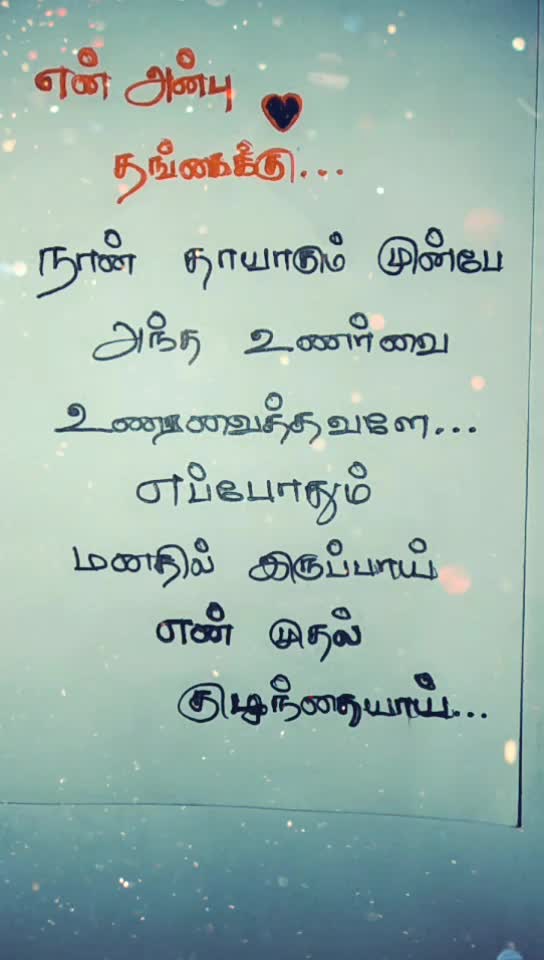 என் அன்பு
தங்கைக்கு...
நான் தாயாகும் முன்பே
அந்த உணர்வை
உணரவைத்தவளே...
எப்போதும்
மனதில் இருப்பாய்
என் முதல்
குழந்தையாய்...